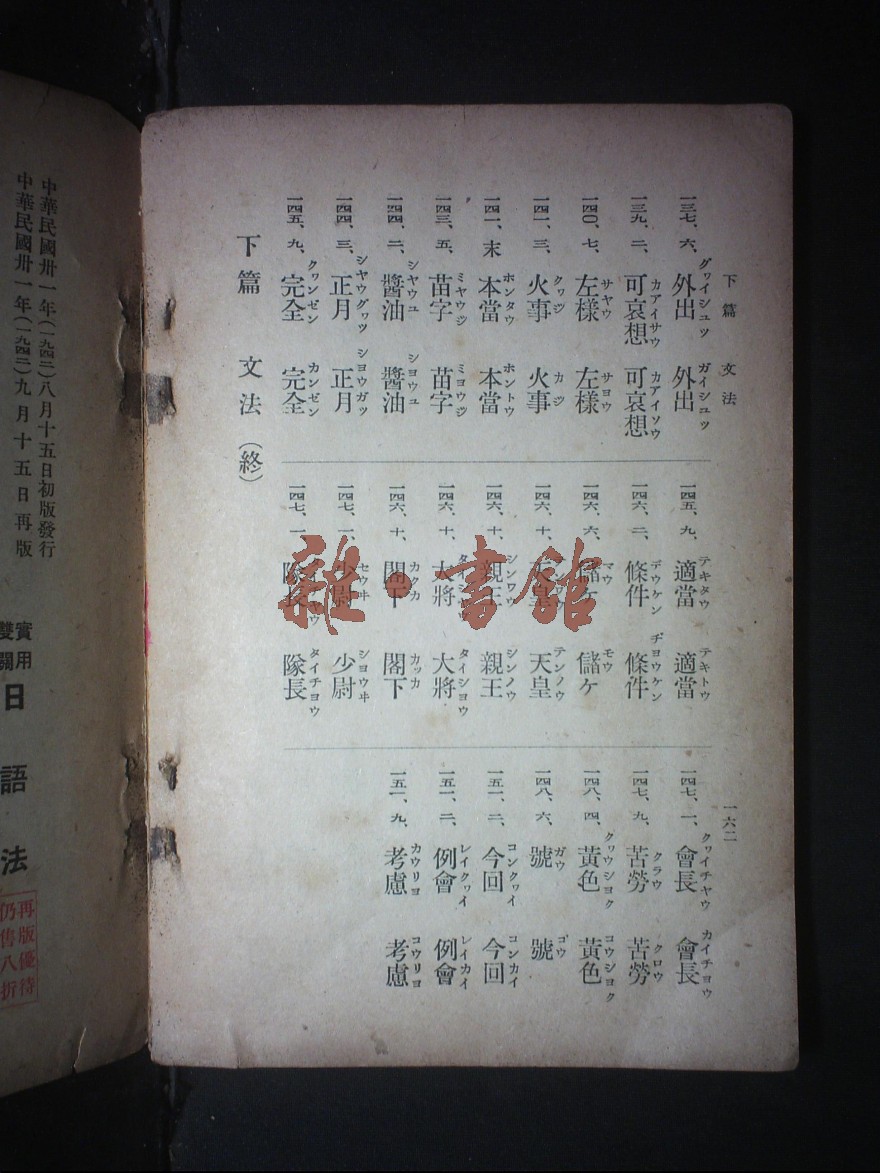 下篇 文法
一三七、六、 外出 グヮイシュッ 外出 ガイシュッ
一三九、二、 可哀想 カアイサウ 可哀想 カアイソウ
一四〇、七、 左樣 サヤウ 左樣 サヨウ
一四一、三、 火事 クヮジ 火事 カジ
一四一、末 本當 ホンタウ 本當 ホントウ
一四三、五、 苗字 ミヤウジ 苗字 ミヨウジ
一四四、二、 醬油 シヤウユ 醬油 シヨウユ
一四四、三、 正月 シヤウグヮツ 正月 シヨウガツ
一四五、九、 完全 クヮンゼン 完全 カンゼン
下篇 文法(終)
一四五、九、 適當 テキタウ 適當 テキトウ
一四六、二、 條件 デウケン 條件 ヂヨウケン
一四六、六、 儲ケ マウ 儲ケ モウ
一四六、十、 皇 天皇 テンノウ
一四六、十、 親王 シンワウ 親王 シンノウ
一四六、十、 大將 大將 タイシヨウ
一四六、十、 閣下 カクカ 閣下 カッカ
一四七、一、 少尉 セウヰ 少尉 シヨウヰ
一四七、一 隊長 隊長 タイチヨウ
一六二
一四七、一、 會長 クヮイチヤウ 會長 カイチョウ
一四七、九、 苦勞 クラウ 苦勞 クロウ
一四八、四、 黃色 クヮウシヨク 黃色 コウシヨク
一四八、六、 號 ガウ 號 ゴウ
一五一、二、 今回 コンクヮイ 今回 コンカイ
一五一、二、 例會 レイクヮイ 例會 レイカイ
一五一、九、 考慮 カウリヨ 考慮 コウリヨ
雜·書館
中華民國卅一年(一九四二)八月十五日初版發行
中華民國卅一年(一九四二)九月十五日再版
實用
雙關
日語法
再版優待
仍售八折